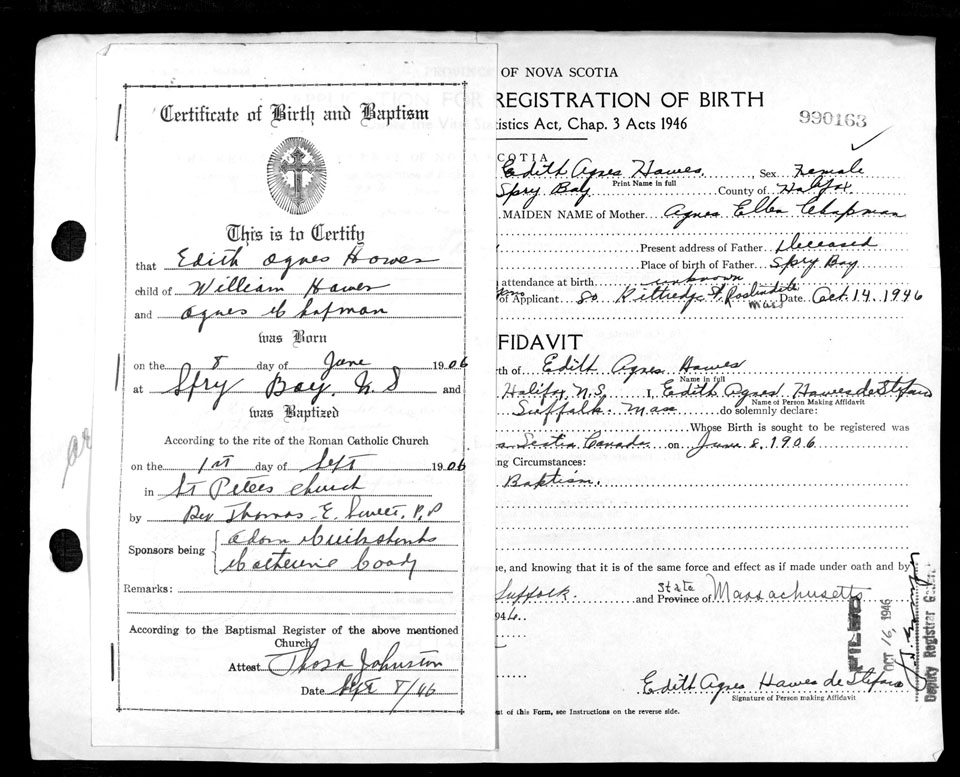 Certificate of Birth and Baptism
This is to Certify
that Edith Agnes Hawes
child of William Hawes
and Agnes Chapman
was Born
on the 8 day of June 1906
at Spry Bay, N S and
was Baptized
According to the rite of the Roman Catholic Church
on the 1st day of Sept 1906
in St Peters Church
by Rev Thomas E. P.P
Sponsors being
Catherine Coady
Remarks:
According to the Baptismal Register of the above mentioned
Church
Attest Johnston
Date Sept 8/46
OF NOVA SCOTIA
REGISTRATION OF BIRTH
istics Act, Chap. 3 Acts 1946
990163
COTIA
Edith Agnes Hawes, Sex Female
Print Name in full
Spry Bay County of Halifax
MAIDEN NAME of Mother Agnes Ellen Chapman
Present address of Father Deceased
Place of birth of Father Spry Bay
attendance at birth unknown
of Applicant 80 Kittredge St, Roslindale Mass Date Oct. 14, 1946
FIDAVIT
th of Edith Agnes Hawes
Name in full
Halifax, N.S. I, Edith Agnes Hawes de Stefano
Name of Person Making Affidavit
Suffolk Mass do solemnly declare:
Whose Birth is sought to be registered was
Scotia Canada on June 8, 1906
ing Circumstances:
Baptism.
ue, and knowing that it is of the same force and effect as if made under oath and by
Suffolk. and State Province of Massachusetts
946.
FILED
OCT 16, 1946
Deputy Registrar
Edith Agnes Hawes de Stefano
Signature of Person making Affidavit
nt of this Form, see Instructions on the reverse side.